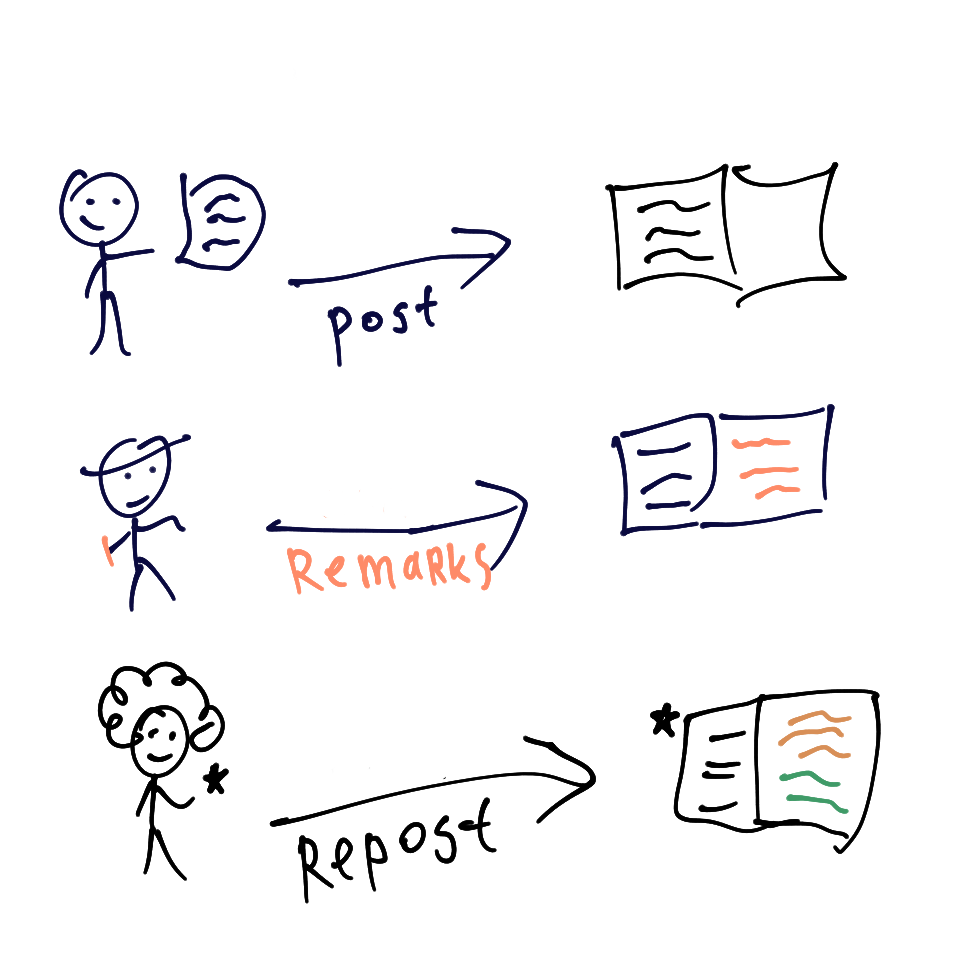 post
Remarks
Repost